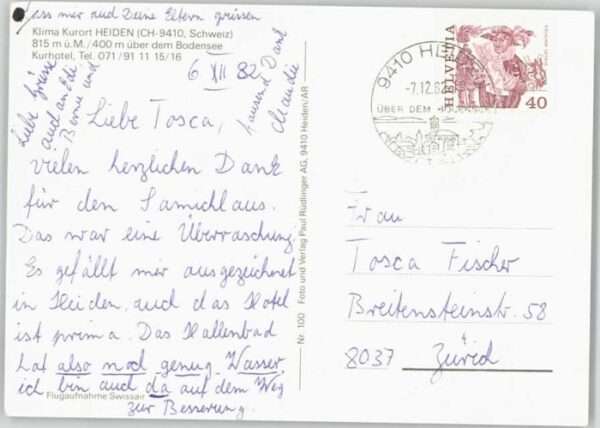 Lass mer und Deine Eltern grüssen
Klima Kurort HEIDEN (CH-9410, Schweiz)
815 m ü.M./400 m über dem Bodensee
Kurhotel, Tel. 071/91 11 15/16
6 XII 82
Liebe Grüsse
auch an Edi
Berne und
tausend Dank
Claudie
Liebe Tosca,
vielen herzlichen Dank
für den Samichlaus.
Das war eine Überraschung.
Es gefällt mir ausgezeichnet
in Heiden, auch das Hotel
ist prima. Das Hallenbad
hat also noch genug Wasser,
ich bin auch da auf dem Weg
zur Besserung.
Flugaufnahme Swissair
Nr. 100 Foto und Verlag Paul Rüdlinger AG, 9410 Heiden/AR
9410 HEIDEN
-7.12.82
ÜBER DEM BODENSEE
HELVETIA
40
Frau
Tosca Fischer
Breitensteinstr. 58
8037 Zürich